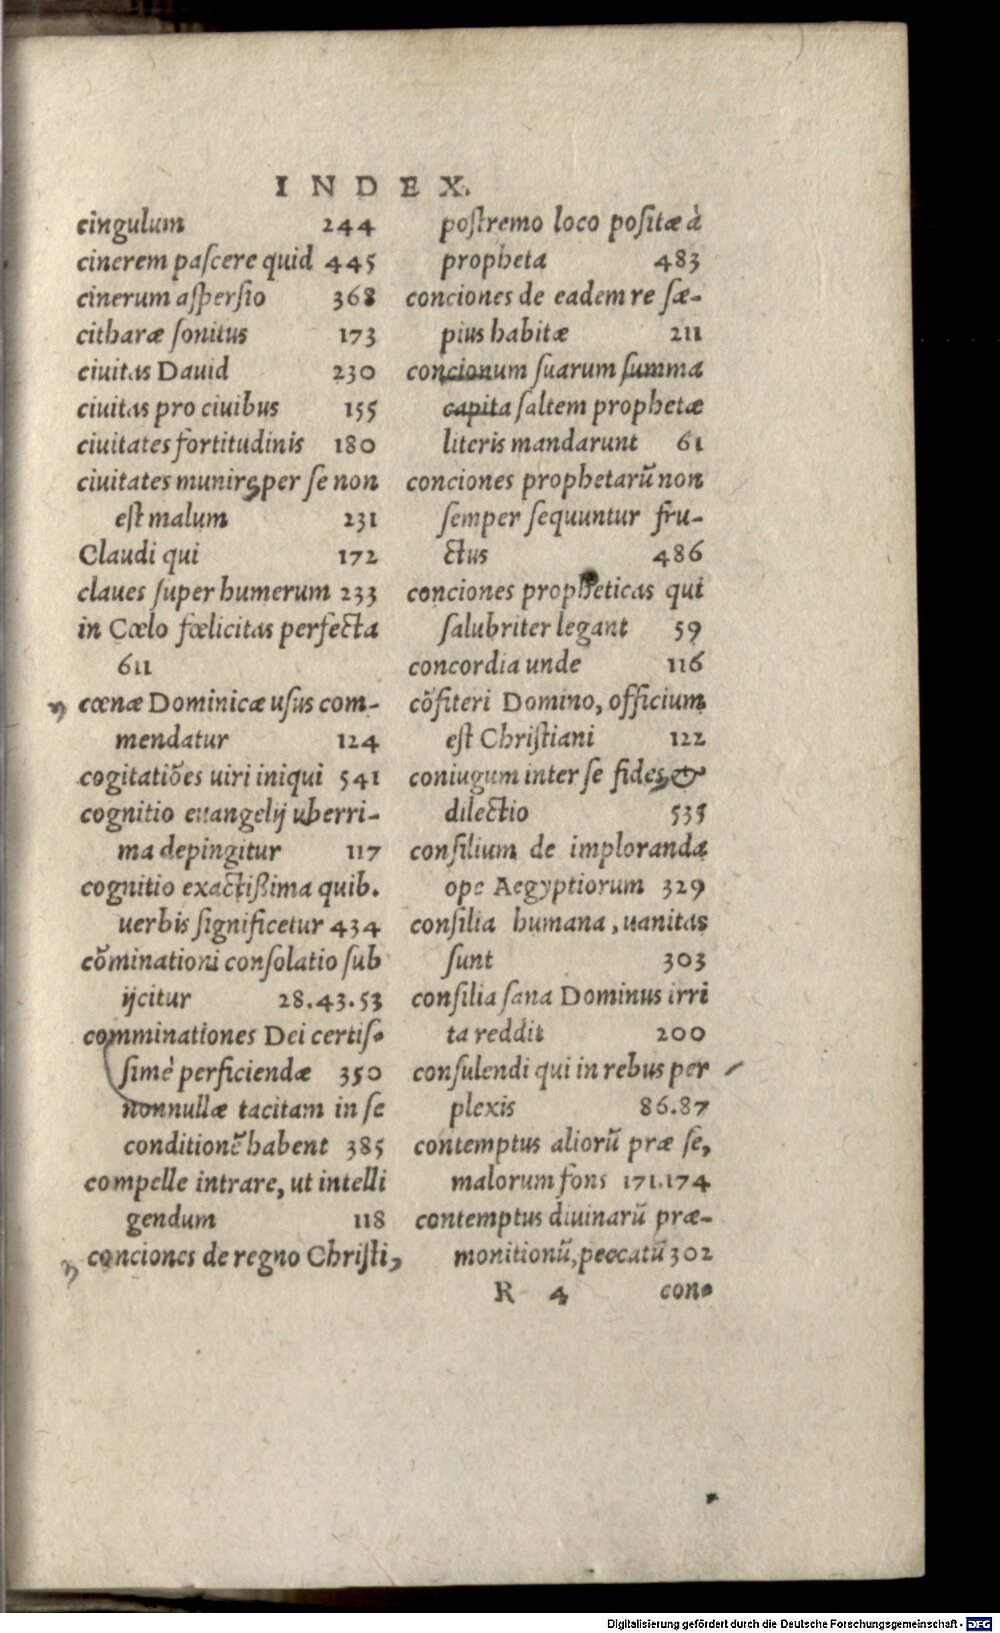 INDEX.
cingulum 244
cinerem pascere quid 445
cinerum aspersio 368
citharæ sonitus 173
ciuitas Dauid 230
ciuitas pro ciuibus 155
ciuitates fortitudinis 180
ciuitates munire, per se non
est malum 231
Claudi qui 172
claues super humerum 233
in Cœlo fœlicitas perfecta
611
cœnæ Dominicæ usus com-
mendatur 124
cogitatiões uiri iniqui 541
cognitio euangelij uberri-
ma depingitur 117
cognitio exactißima quib.
uerbis significetur 434
cõminationi consolatio sub
ijcitur 28.43.53
comminationes Dei certis-
simè perficiendæ 350
nonnullæ tacitam in se
conditionẽ habent 385
compelle intrare, ut intelli
gendum 118
conciones de regno Christi,
postremo loco positæ à
propheta 483
conciones de eadem re sæ-
pius habitæ 211
concionum suarum summa
capita saltem prophetæ
literis mandarunt 61
conciones prophetarũ non
semper sequuntur fru-
ctus 486
conciones propheticas qui
salubriter legant 59
concordia unde 116
cõfiteri Domino, officium
est Christiani 122
coniugum inter se fides, &
dilectio 535
consilium de imploranda
ope Aegyptiorum 329
consilia humana, uanitas
sunt 303
consilia sana Dominus irri
ta reddit 200
consulendi qui in rebus per
plexis 86.87
contemptus aliorũ præ se,
malorum fons 171.174
contemptus diuinarũ præ-
monitionũ, peccatũ 302
R 4 con-
Digitalisierung gefördert durch die Deutsche Forschungsgemeinschaft - DFG